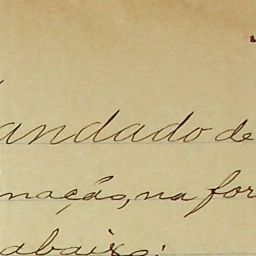 andado de
mação, na for
abaixo: